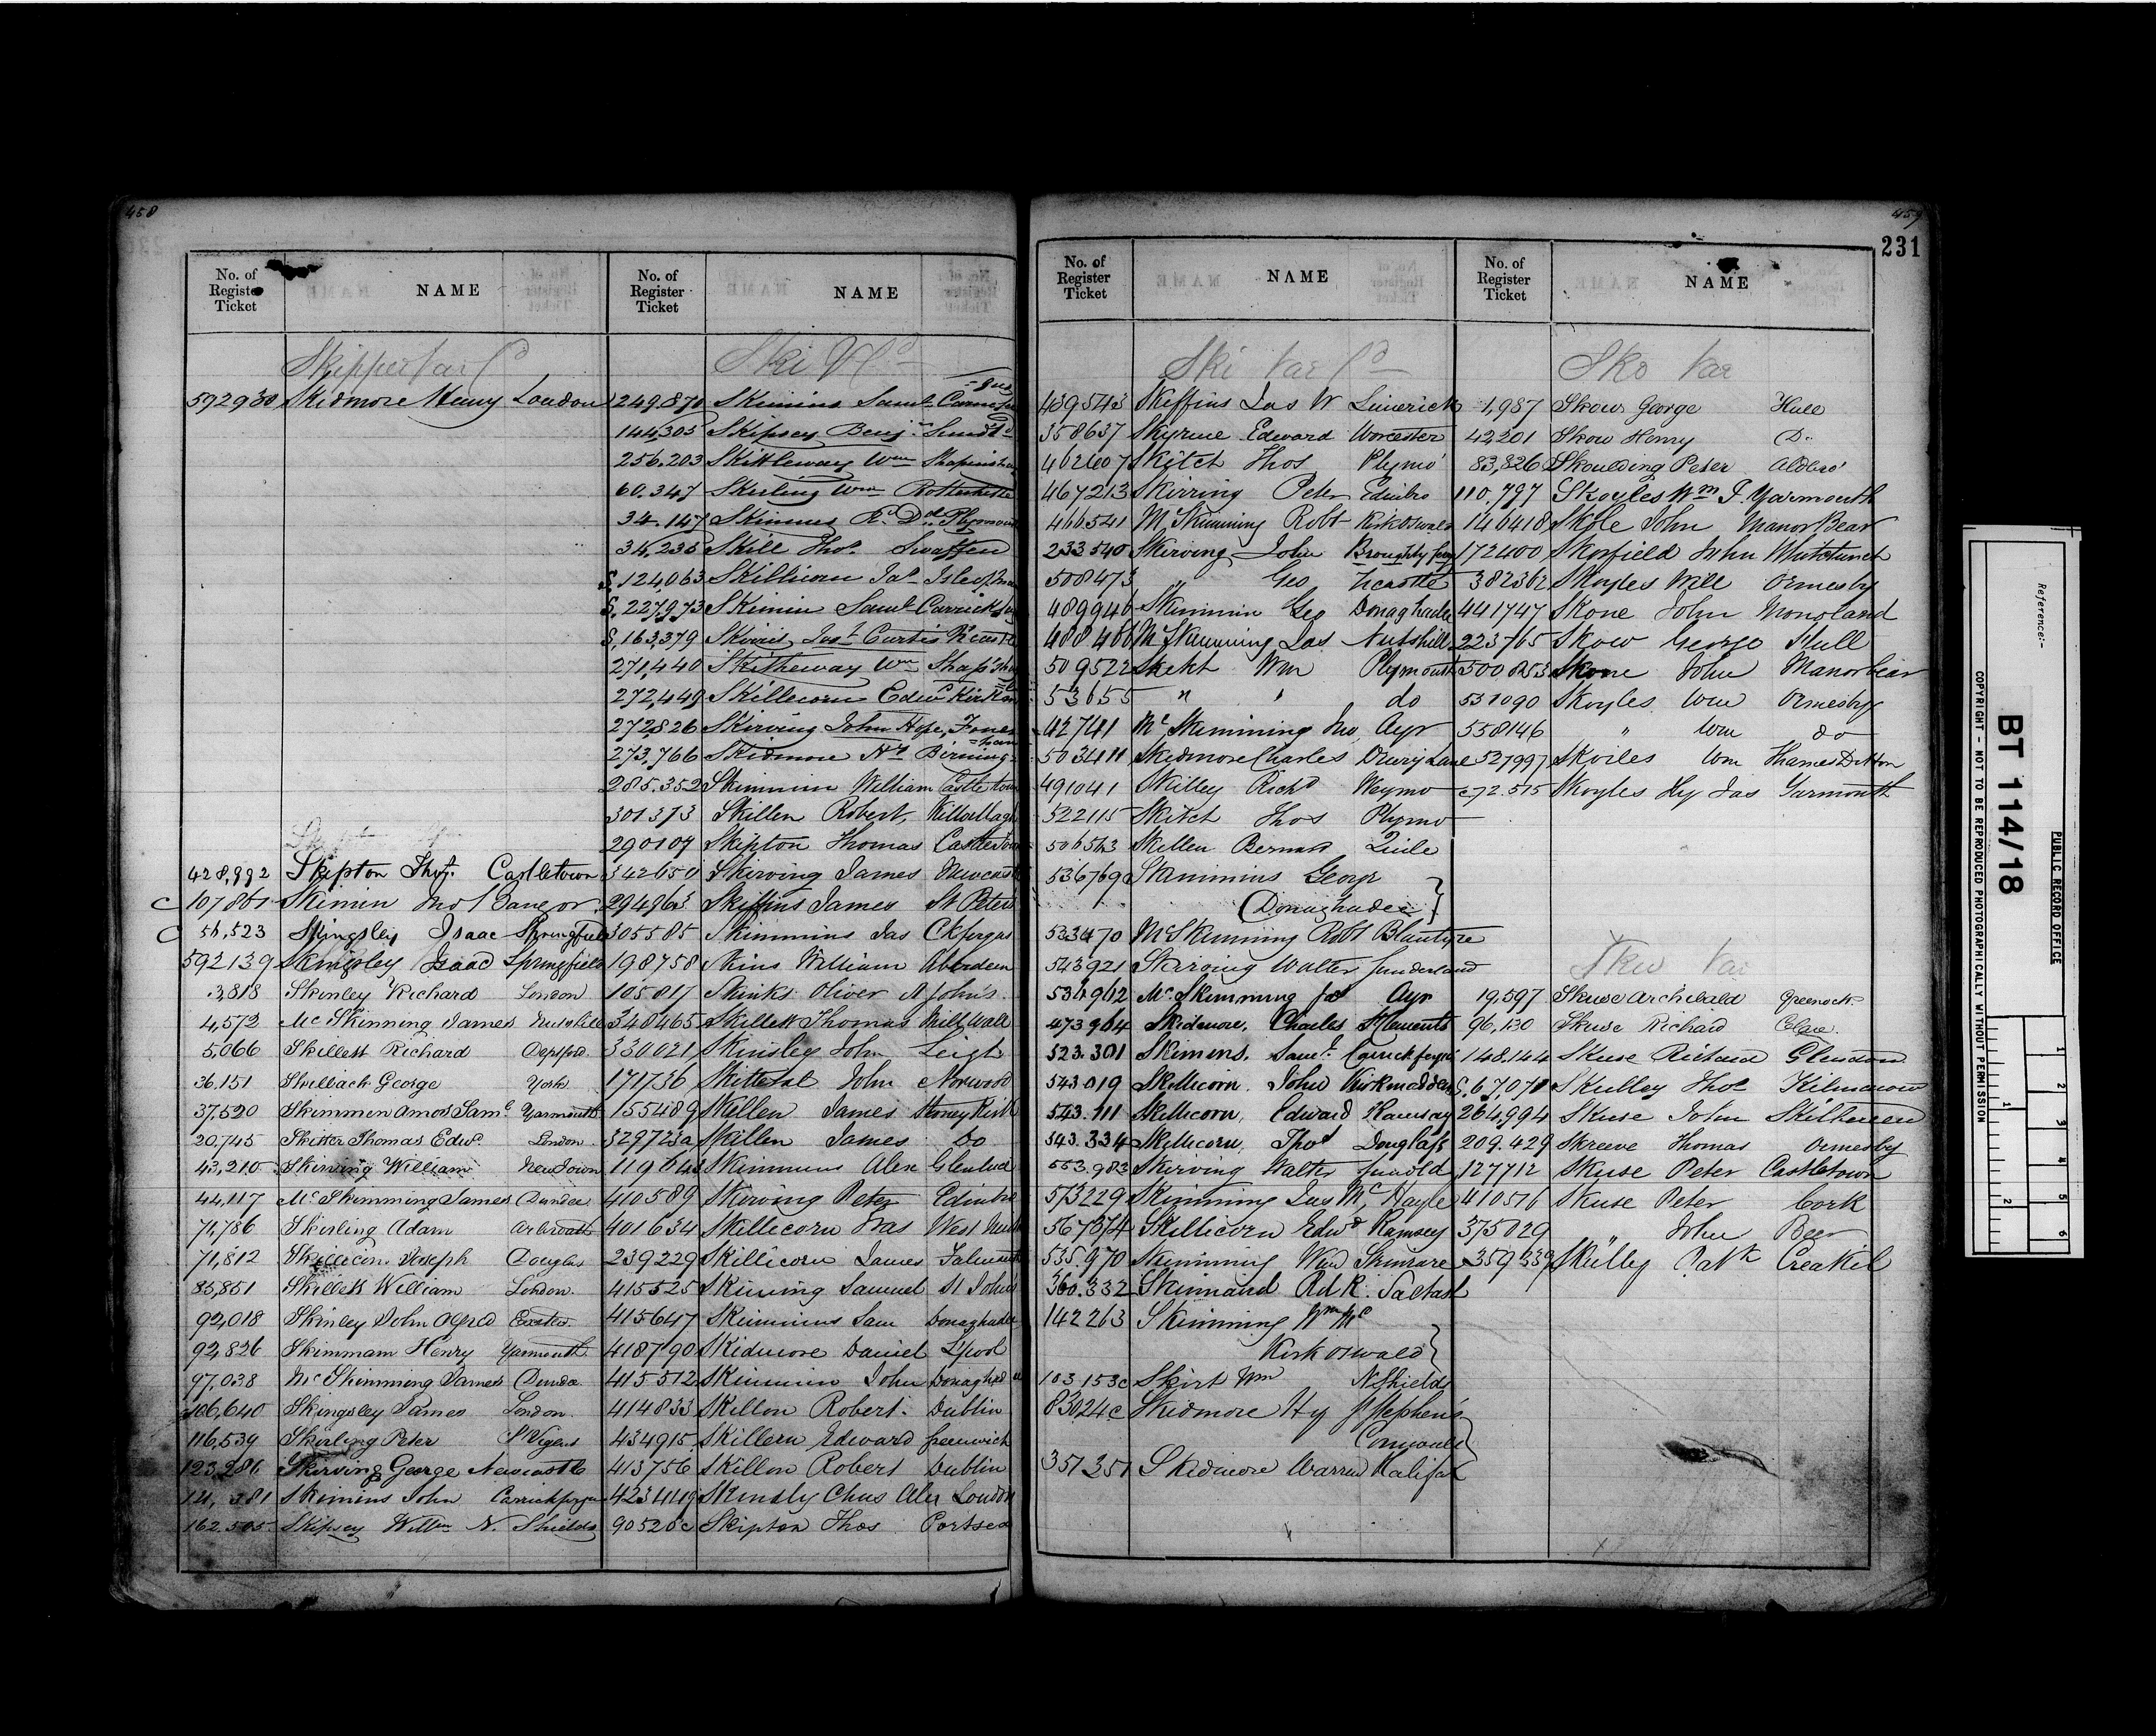 458
No. of Register Ticket NAME
Skipper Var Cd
592930 Skidmore Henry London
428,992 Skipton Thos. Castletown
C 107861 Skimin Jno Bangor
C 51,523 Skingsley Isaac Springfield
592139 Skingsley Isaac Springfield
3,818 Skinley Richard London
4,572 McSkimming James
5,066 Skillett Richard Deptford
36,151 George York
37,520 Skimmen Amos Saml Yarmouth
20,745 Skitter Thomas Edwd London
43,210 Skirving William Newtown
44,117 McSkimming James Dundee
71,786 Skirling Adam Arbroath
71,812 Skillicorn Joseph Douglas
85,851 Skillett William London
92,018 Skinley John Alfred Exeter
92,826 Skimmam Henry Yarmouth
97,038 McSkimming James Dundee
106,640 Skingsley James London
116,539 Skirling Peter St Vigens
123,286 Skirving George Newcastle
121,381 Skimins John Carrickfergus
162.505 Skipsey Willm N. Shields
No. of Register Ticket NAME
Ski Vr Cd
249.870 Skimins Saml
144,305 Skipsey Benj. Sundld
256.203 Skittleway Wm
60.347 Skirling Wm
34.147 Skinnes Rd Dd Plymouth
34,235 Skill Thos. Swaffen
S. 124,063 Skillicorn Jas Isle of Man
S. 227,973 Skimin Saml Carrickfergus
S. 163,379 Curtis
271,440 Skitheway Wm
272,449 Skillicorn Edwd
272,826 Skirving John Hope
273,766 Skidmore Hy Birmingham
285.352 Skimmin William Castletown
301373 Skillen Robert
290107 Skipton Thomas Castletown
342650 Skirving James Newcastle
294963 Skiffins James St Peters
305585 Skimmins Jas Ckfergus
198758 Skins William Aberdeen
105817 Skinks Oliver St John's
348465 Skillett Thomas Millwall
330021 Skinsley John Leigh
171736 John Norwood
155489 Skillen James Stoney Kirk
329723a Skillen James Do
Skimmins Alex Glenluce
410589 Skirving Peter Edinbro
401634 Skillicorn
239229 Skillicorn James Falmouth
415525 Skinning Samuel St John's
415647 Skimmins Sam Donaghadee
418790 Skidmore Daniel L'pool
415512 Skimmin John Donaghadee
414833 Skillon Robert Dublin
434915 Skillern Edward Greenwich
413756 Skillon Robert Dublin
423444 Chas Alex London
90526c Skipton Thos Portsea
459
231
No. of Register Ticket NAME
Ski Var Cd
439543 Skiffins Jas W Limerick
358637 Skyrme Edward Worcester
462607 Skitch Thos Plymo
467213 Skirring Peter Edinbro
466541 McSkimming Robt Kirkoswald
233540 Skirving John Broughty Ferry
508473 " Geo Ncastle
489946 Skimmin Geo Donaghadee
408466 McSkimming Jas Nutshill
509522 Wm Plymouth
53655 " " do
427411 McSkimming Jno Ayr
503411 Skidmore Charles Drury Lane
491041 Skilley Richd Weymo
522115 Skitch Thos Plymo
506563 Skillen Bernard Quile
536769 Skimmins George
(Donaghadee)
533470 McSkimming Robt Blantyre
543921 Skirving Walter Sunderland
534962 McSkimming Jas Ayr
473964 Skidmore, Charles St Clements
523.301 Skimens, Saml. Carrickfergus
543019 Skillicorn John Kirkmadden
543.111 Skillicorn, Edward Ramsay
543.334 Skillicorn, Thos Douglass
553.983 Skirving Walter Sundld
573229 Skimming Jas Mc Hayle
567374 Skillicorn Edwd Ramsey
535.970 Skimming Wm
360.332 Skinnard Rd R. Saltash
142263 Skimming Wm Mc
Kirkoswald
103153c Skirt Wm N Shields
83024c Skidmore Hy St Stephens
Cornwall
351351 Skidmore Warren Halifax
No. of Register Ticket NAME
Sko Var
1,987 Skow George Hull
42,201 Skow Henry Do
83,826 Skoulding Peter Aldbro'
110.797 Skoyles Wm J. Yarmouth
146418 Skole John Manor Bear
172400 Skorfield John Whitchurch
382362 Skoyles Will Ormesby
441747 Skone John Monsland
223765 Skow George Hull
500853 Skone John Manorbear
531090 Skoyles Wm Ormesby
558146 " Wm do
527997 Skoiles Wm Thames Ditton
c72.515 Skoyles Hy Jas Yarmouth
Sku Var
19,597 Skuse Archibald Greenock
96,130 Skuse Richard Clare
148,144 Skuse Richard Glendon
S. 67,071 Skulley Thos
264,994 Skuse John Skibereen
209.429 Skreeve Thomas Ormesby
127712 Skuse Peter Castletown
410576 Skuse Peter Cork
375029 " John Beer
359339 Skulley Patk
Reference:-
BT 114/18
PUBLIC RECORD OFFICE
COPYRIGHT - NOT TO BE REPRODUCED PHOTOGRAPHICALLY WITHOUT PERMISSION
1 2 3 4 5 6
1 2